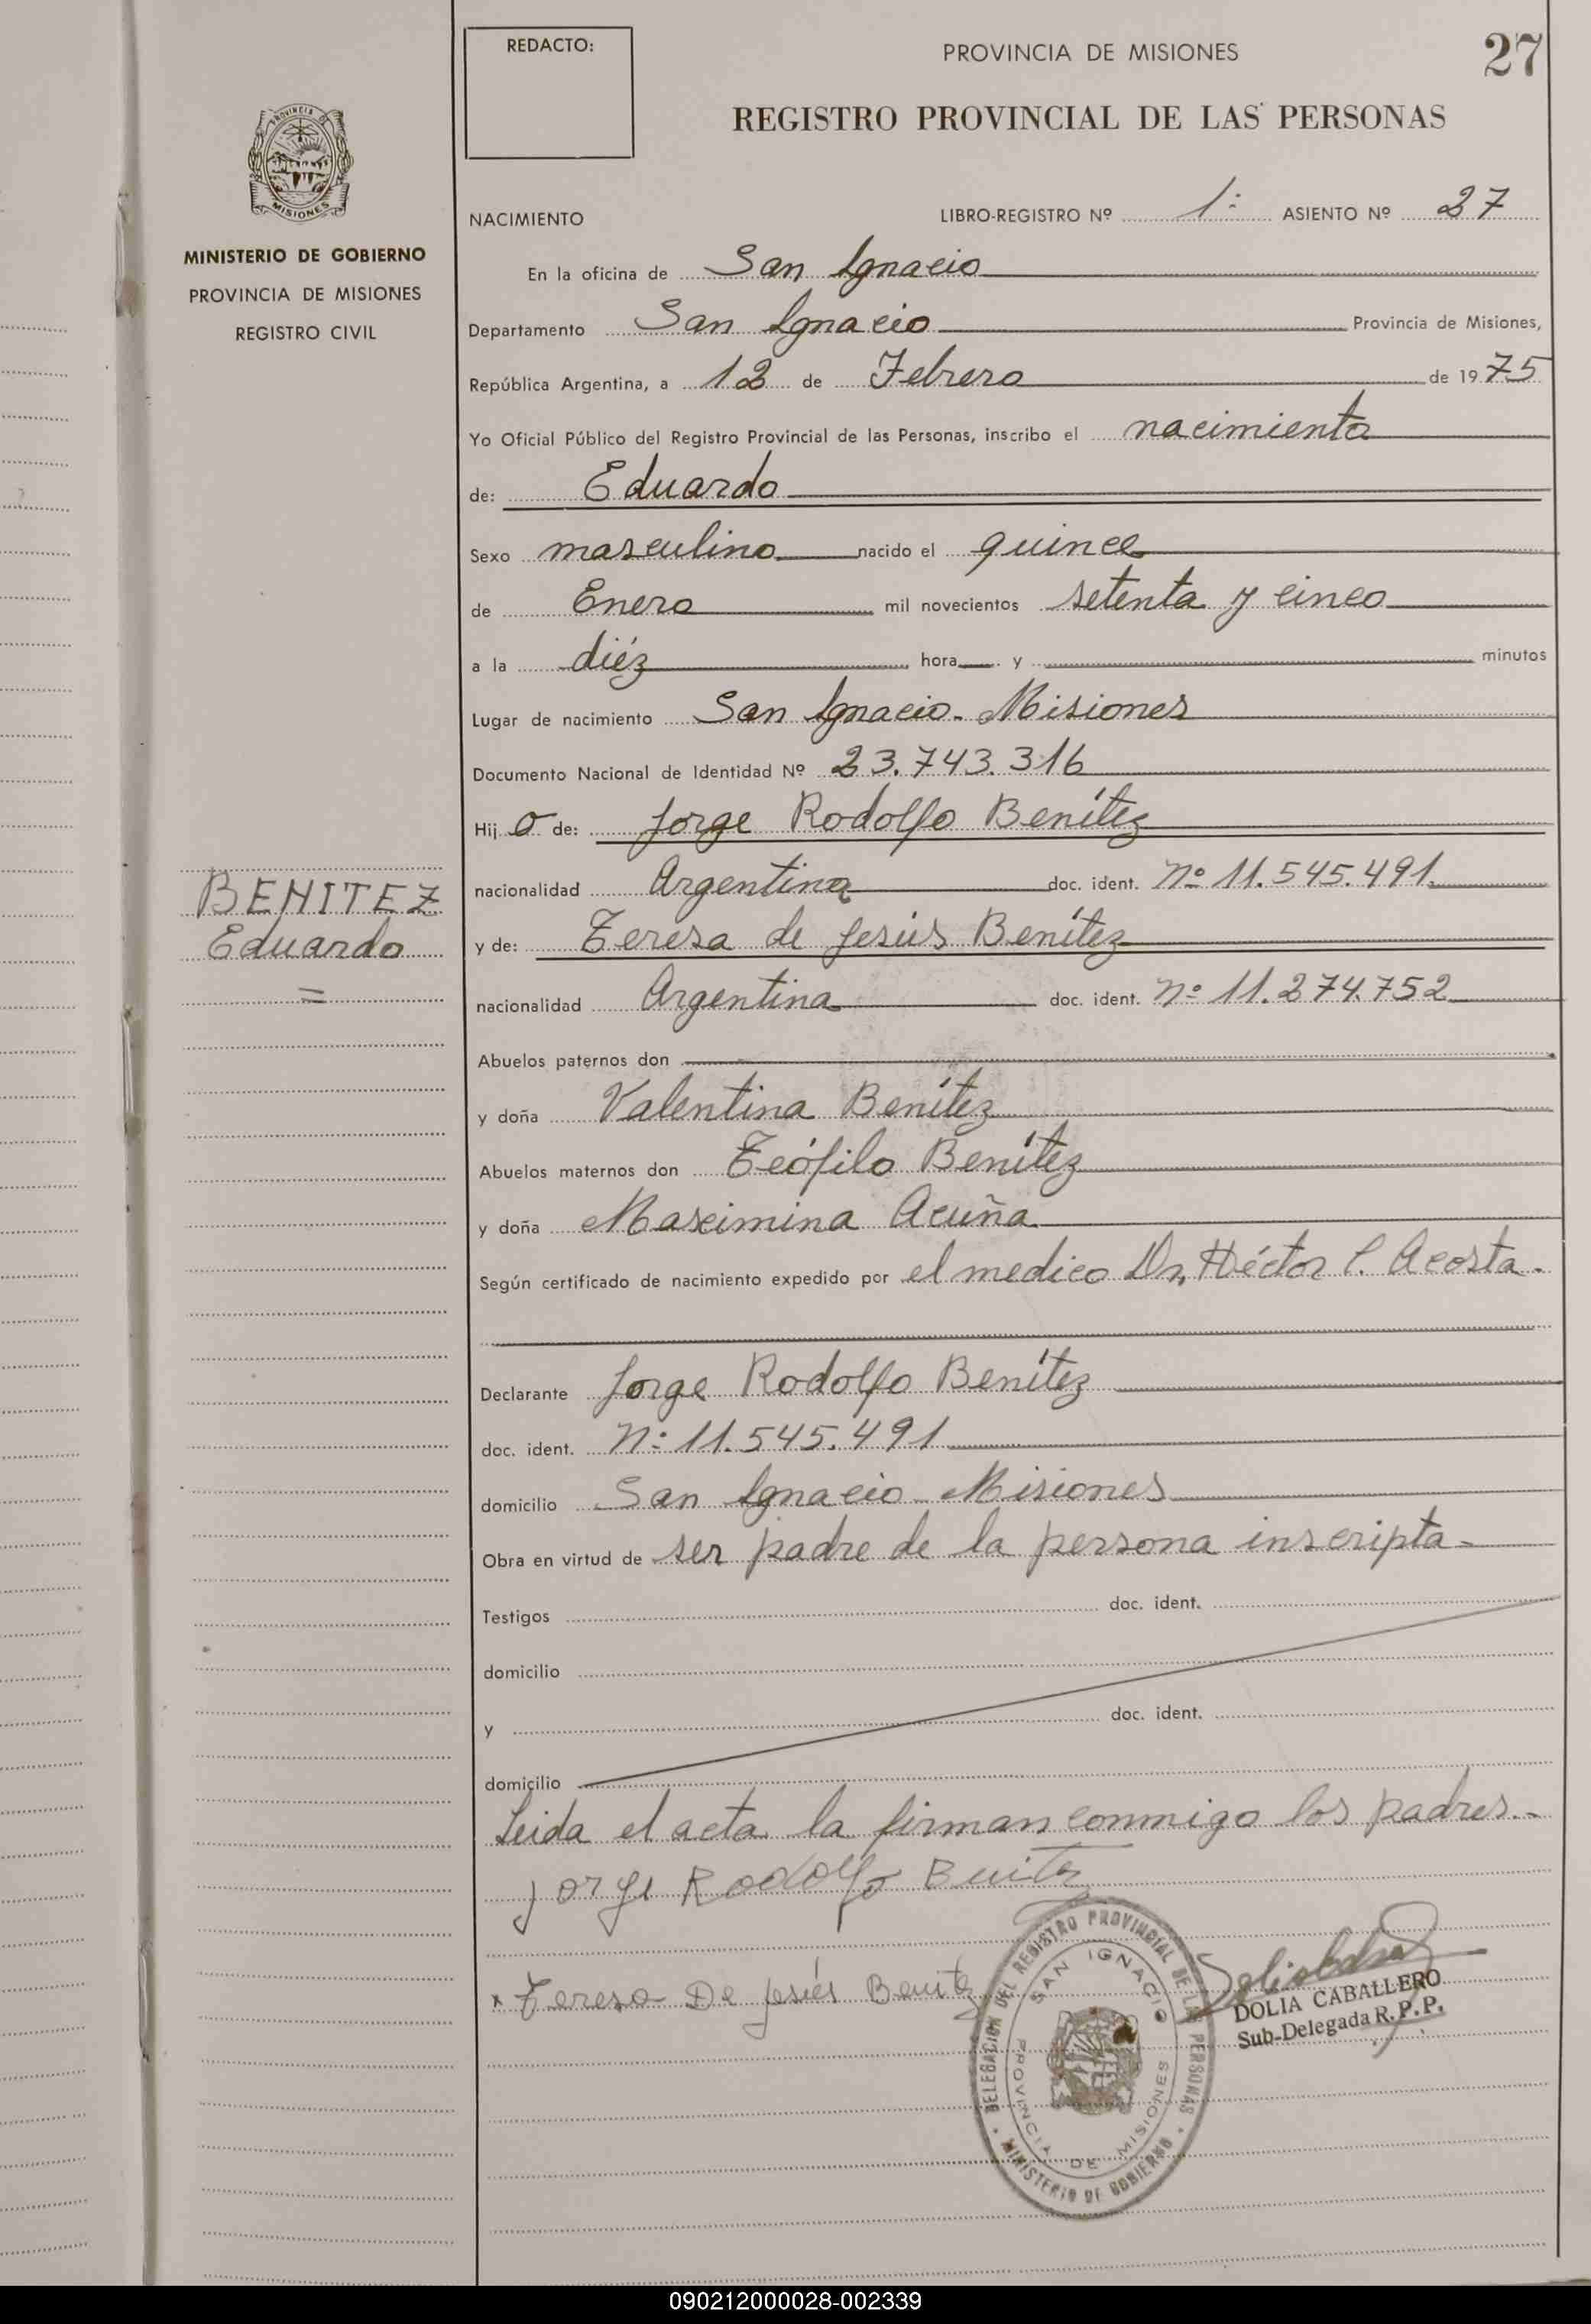 REDACTO:
PROVINCIA DE MISIONES
27
REGISTRO PROVINCIAL DE LAS PERSONAS
PROVINCIA DE
MISIONES
MINISTERIO DE GOBIERNO
PROVINCIA DE MISIONES
REGISTRO CIVIL
NACIMIENTO
LIBRO-REGISTRO Nº 1: ASIENTO Nº 27
En la oficina de San Ignacio
Departamento San Ignacio Provincia de Misiones,
República Argentina, a 12 de Febrero de 1975
Yo Oficial Público del Registro Provincial de las Personas, inscribo el nacimiento
de: Eduardo
Sexo masculino nacido el quince
de Enero mil novecientos setenta y cinco
a la diéz hora y minutos
Lugar de nacimiento San Ignacio - Misiones
Documento Nacional de Identidad Nº 23.743.316
Hijo de: Jorge Rodolfo Benítez
nacionalidad Argentina doc. ident. Nº 11.545.491
BENITEZ
Eduardo
=
y de: Teresa de Jesús Benítez
nacionalidad Argentina doc. ident. Nº 11.274.752
Abuelos paternos don
y doña Valentina Benítez
Abuelos maternos don Teófilo Benítez
y doña Maxcimina Acuña
Según certificado de nacimiento expedido por el medico Dr. Héctor P. Acosta.
Declarante Jorge Rodolfo Benítez
doc. ident. Nº 11.545.491
domicilio San Ignacio - Misiones
Obra en virtud de ser padre de la persona inscripta -
Testigos doc. ident.
domicilio
y doc. ident.
domicilio
Leida el acta la firman conmigo los padres.-
Jorge Rodolfo Benitez
x Teresa De Jesús Benitez
DELEGACION DEL REGISTRO PROVINCIAL DE LAS PERSONAS
SAN IGNACIO
PROVINCIA DE MISIONES
MINISTERIO DE GOBIERNO
DOLIA CABALLERO
Sub-Delegada R.P.P.
090212000028-002339